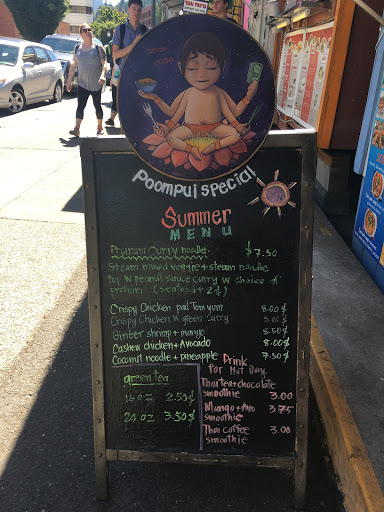 THAI PATO
Poompui special
Summer
MENU
Praram Curry noodle $7.50
Steam mixed veggie + steam noodle
top w peanut sauce curry w choice of
protein (seafood + 2$)
Crispy Chicken pad Tom yum 8.00$
Crispy Chicken w green curry 8.00$
Ginger shrimp + mango 8.50$
Cashew chicken + Avocado 8.00$
Coconut noodle + pineapple 7.50$
Drink
For Hot Day
green tea
16 oz 2.50$
24 oz 3.50$
Thai tea + chocolate
smoothie 3.00
Mango + Avo 3.75
smoothie
Thai coffee 3.00
smoothie